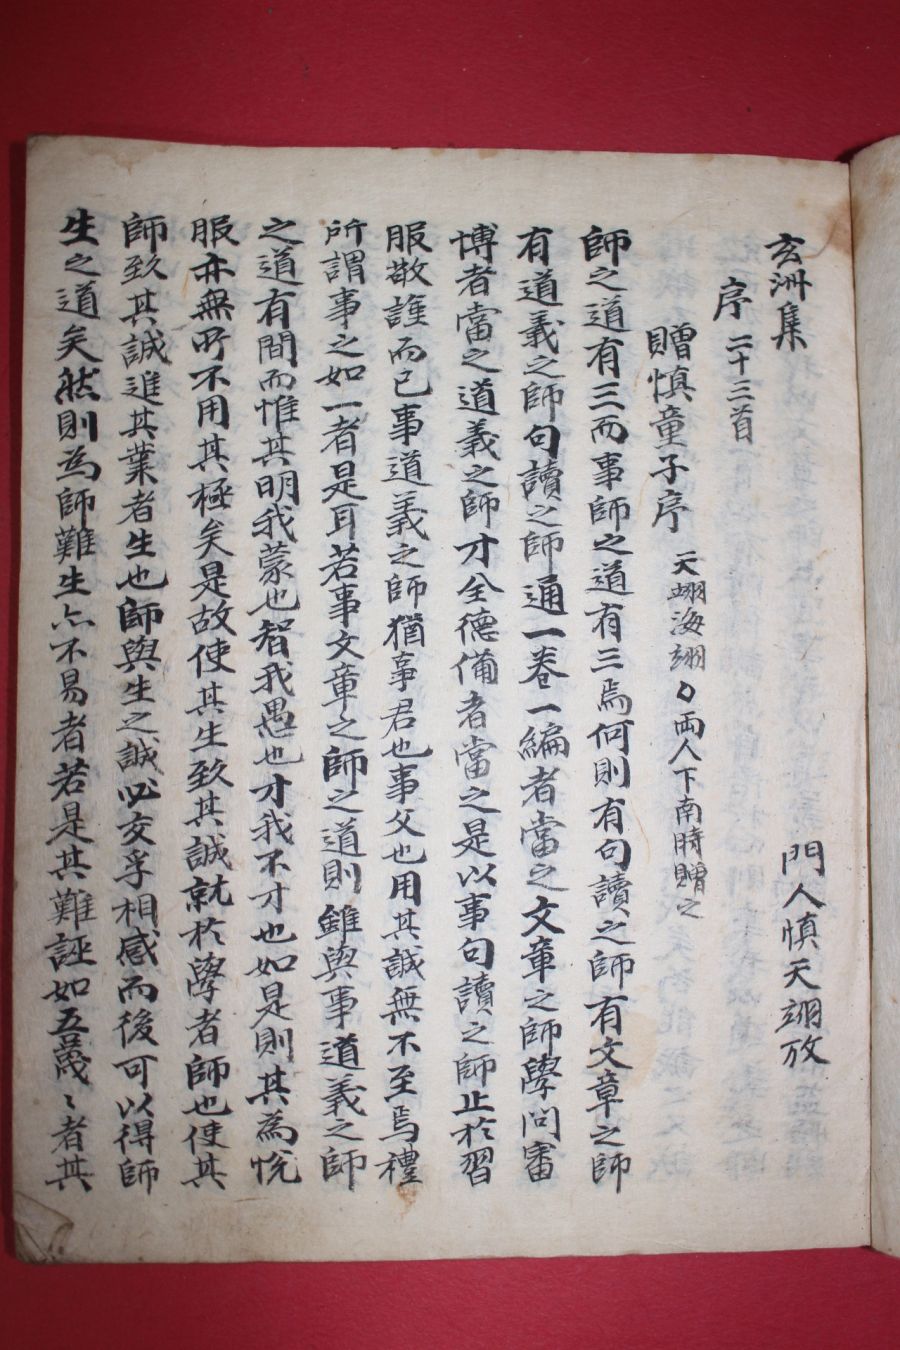 玄洲集
門人慎天翊攷
序 二十三首
贈慎童子序 天翊海翊〻兩人下南時贈之
師之道有三而事師之道有三焉何則有句讀之師有文章之師
有道義之師句讀之師通一卷一編者當之文章之師學問審
博者當之道義之師才全德備者當之是以事句讀之師止於習
服敬謹而已事道義之師猶事君也事父也用其誠無不至焉禮
所謂事之如一者是耳若事文章之師之道則雖與事道義之師
之道有間而惟其明我蒙也智我愚也才我不才也如是則其為悅
服亦無所不用其極矣是故使其生致其誠就於學者師也使其
師致其誠進其業者生也師與生之誠必交孚相感而後可以得師
生之道矣然則為師難生亦不易者若是其難誣如吾莪〻者其